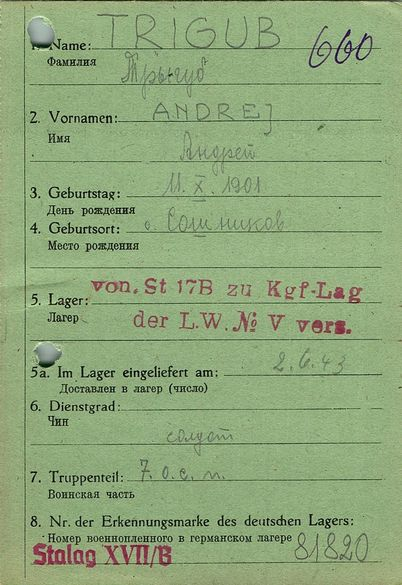 TRIGUB
1. Name:
660
Фамилия
Тригуб
ANDREJ
2. Vornamen:
Имя
Андрей
3. Geburtstag: 11. X. 1901
День рождения
4. Geburtsort: с. Сошников
Место рождения
von. St 17B zu Kgf-Lag
5. Lager:
Лагер
der L.W. № V vers.
5a. Im Lager eingeliefert am: 2.6.43
Доставлен в лагер (число)
6. Dienstgrad:
Чин
солдат
7. Truppenteil: 7. о. с. п.
Воинская часть
8. Nr. der Erkennungsmarke des deutschen Lagers:
Номер военнопленного в германском лагере 81820
Stalag XVII/B